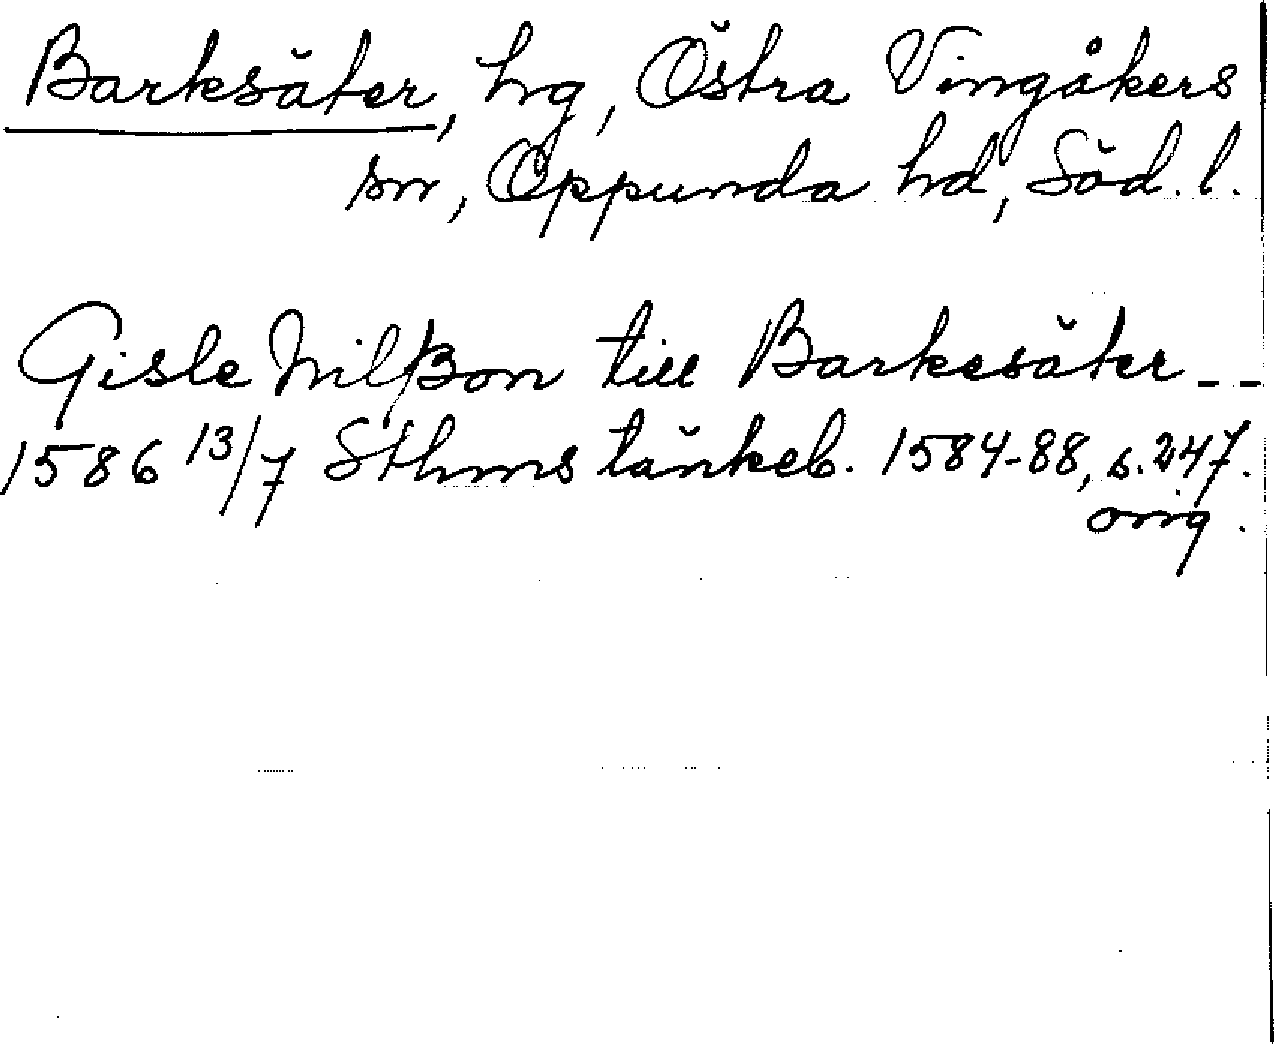 Barksäter, hg, Östra Vingåkers
sn, Oppunda hd, Söd. l.
Gisle Nilßon till Barkesäter - -
1586 13/7 Sthms tänkeb. 1584-88, s. 247.
orig.